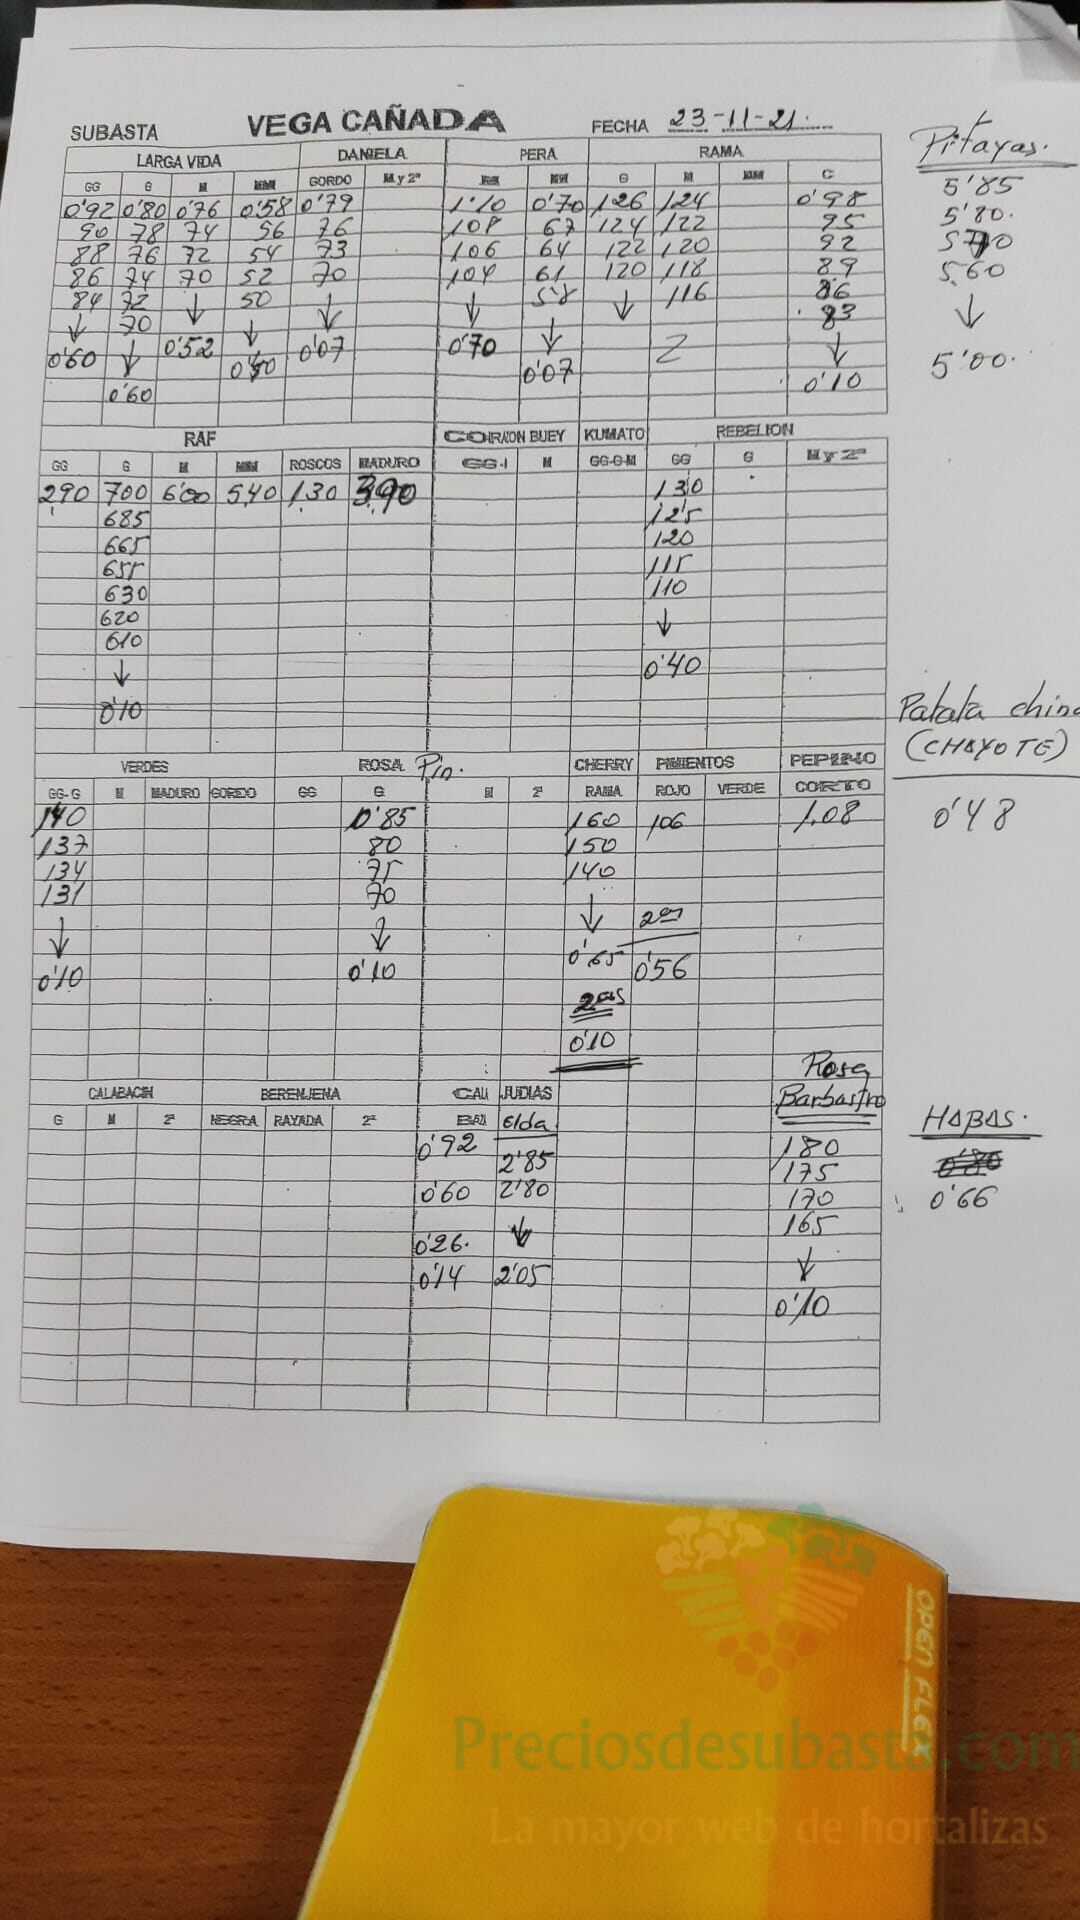 SUBASTA VEGA CAÑADA FECHA 23-11-21
Pitayas.
LARGA VIDA DANIELA PERA RAMA
GG G M MMM GORDO M y 2ª MM G M MMM C
0'92 0'80 0'76 0'58 0'79 1'10 0'70 126 124 0'98 5'85
90 78 74 56 76 108 67 124 122 95 5'80.
88 76 72 54 73 106 64 122 120 92
86 74 70 52 70 104 61 120 118 89 5,60
84 72 ↓ 50 ↓ ↓ 58 ↓ 116 86 ↓
↓ 70 ↓ ↓ 83
0'60 ↓ 0'52 0'07 0'70 ↓ ↓ 5'00.
0'60 0'07 0'10
RAF CORAZON BUEY KUMATO REBELION
GG G M MMM ROSCOS MADURO GG-1 M GG-G-M GG G M y 2ª
290 700 600 5,40 1,30 3,90 130
685 125
665 120
655 115
630 110
620 ↓
610
↓ 0'40
0'10
Patata china
(CHAYOTE)
0'48
VERDES ROSA Pin. CHERRY PIMIENTOS PEPINO
GG-G M MADURO GORDO GG G M 2ª RAMA ROJO VERDE CORTO
140 0'85 160 106 1.08
137 80 150
134 75 140
131 70
↓ ↓ ↓ 2as
0'10 0'10 0'65 0'56
2as
0'10
Rosa
Barbastro
CALABACIN BERENJENA JUDIAS
G M 2ª NEGRA RAYADA 2ª Elda
HABAS.
0'92 2'85 180
175
0'60 2'80 170 0'66
0'26. ↓ 165
0'14 2'05 ↓
0'10
OPEN FLEX
Preciosdesubasta.com
La mayor web de hortalizas